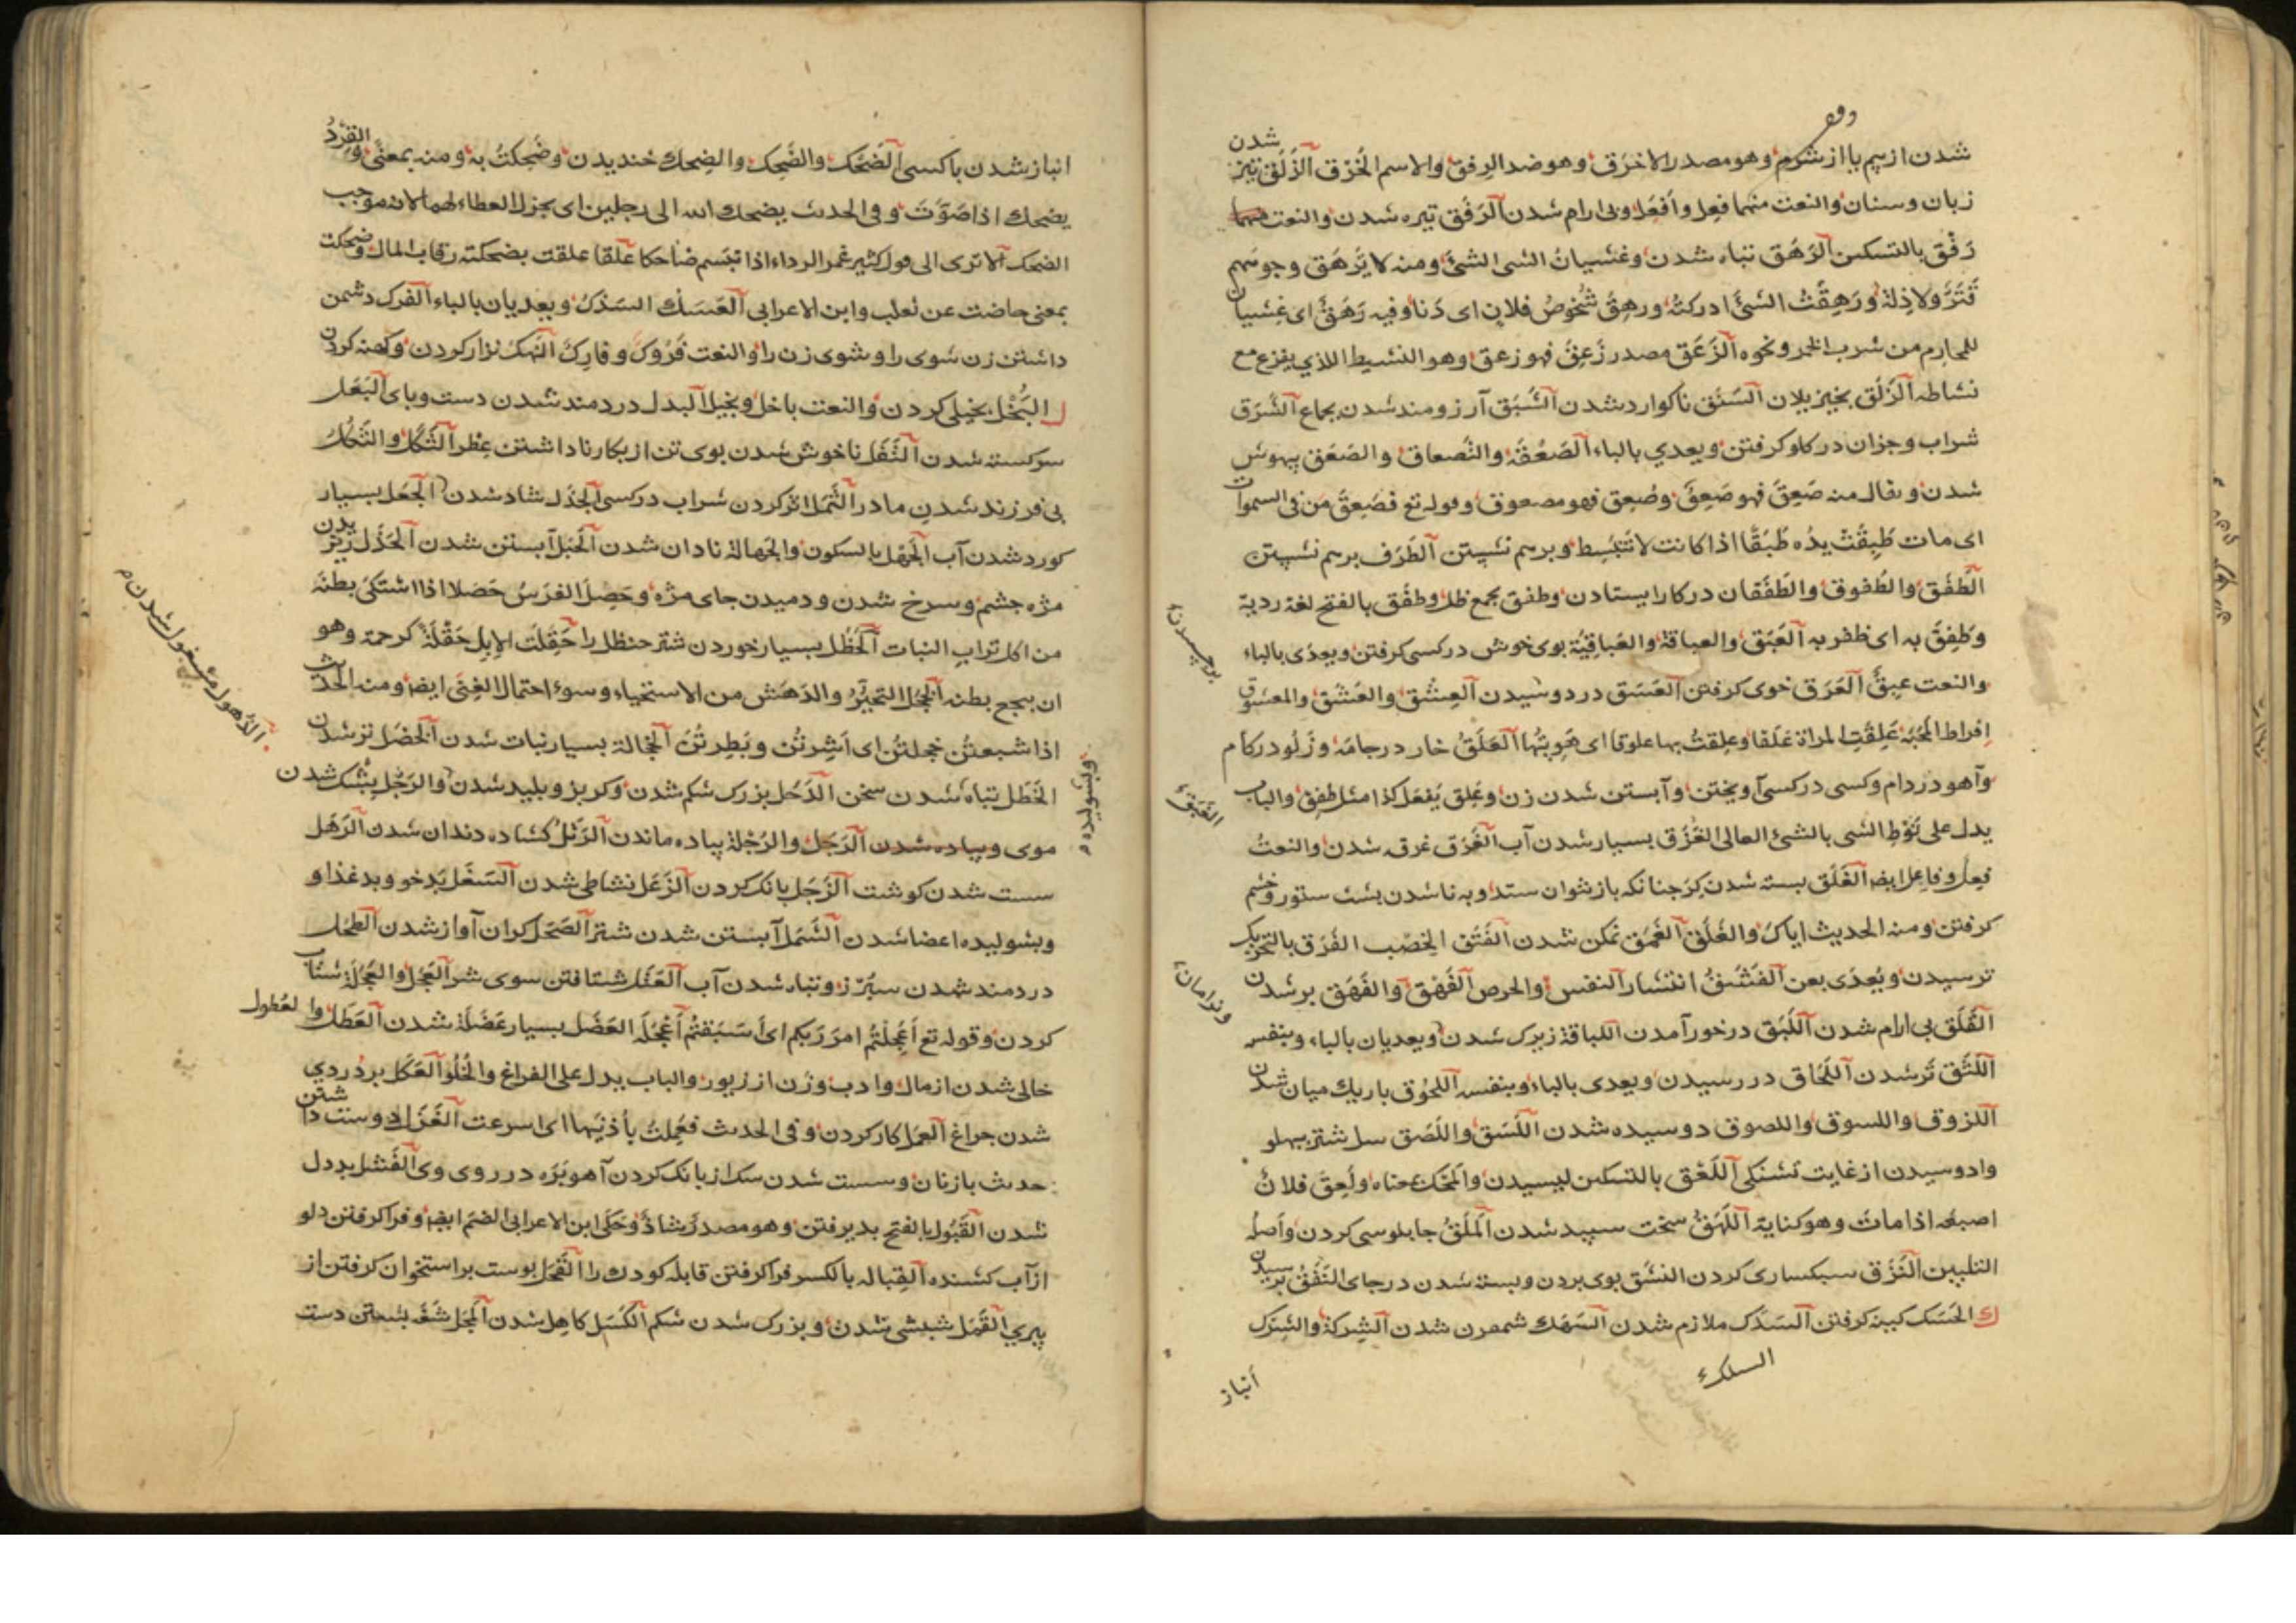 شدن از بیم یا از شرم وهو مصدر الاخرق وهو ضد الرفق والاسم الخُرْق الذَلَق تیز شدن
زبان وسنان والنعت منهما فَعِل وأفعَل وبی ارام شدن الرَفَق تیره شدن والنعت
رَفْق بالتسکین الرَهَق تباه شدن وغشیانُ الشی الشئَ ومنه لا یَرهَق وجوههم
قَتَرٌ ولا ذِلة ورَهِقْتُ الشئَ ادرکتُه ورهِقَ شُخوصُ فلانٍ ای دَنا وفیه رَهَقٌ ای غِشیان
للمحارم من شرب الخمر ونحوه الزَعَق مصدر زَعِقَ فهو زعق وهو النشیط الذي یفزع مع
نشاطه الزَلَق بخیزیدن السَنَق ناکوارد شدن الشَبَق آرزومند شدن بجماع الشَرَق
شراب وجزان در کلو کرفتن ویعدي بالباء الصَعْقَة والتَصعاق والصَعَق بیهوش
شدن ویقال منه صَعِقَ فهو صَعِقٌ وصُعِق فهو مصعوق وقوله تع فصَعِقَ مَن فی السموات
ای مات طَبِقَتْ یدُه طَبَقًا اذا کانت لا تَنبَسِط وبرهم نشستن الطَرَف برهم نشستن
الطَفَق والطُفوق والطَفَقان در کار ایستادن وطفق بجمع ظل وطفَق بالفتح لغة ردیة
وطَفِقَ به ای ظفر به العَبَق والعباقة والعَباقِیَة بوی خوش در کسی کرفتن ویعدّی بالباء
والنعت عبِقٌ العَرَق خوی کرفتن العَسَق در دوسیدن العِشْق والعَشَق والمعشوق
اِفراط المحَبّه عَلِقَتِ المراة عَلَقا وعلِقتُ بها علوقا ای هَوِیتُها العَلَقُ خار در جامه وزَلُو در کام
وآهو در دام وکسی در کسی آویختن وآبستن شدن زن وعَلِق یَفعَل کذا مثل طفِق والباب
یدل علی نَوْطِ الشی بالشئ العالی الغَزَق بسیار شدن آب الغَرَق غرقه شدن والنعتُ
فعِلٌ وفاعِل ایضا الغَلَق بسته شدن کرو جنانکه باز نتوان ستد وبه ناشدن پشت ستور وخشم
کرفتن ومنه الحدیث ایاکَ والغَلَقَ الغَمَق نمکن شدن الفَتَق الخِصْب الفَرَق بالتحریک
ترسیدن ویُعدّی بعن الفَشَقُ انتشار النفس والحرص الفَهْق والفَهَق پر شدن
القَلَق بی ارام شدن اللَبَق در خور آمدن اللباقة زیرک شدن ویعدیان بالباء وبنفسه
اللَثَق تَر شدن اللَحاق در رسیدن ویعدی بالباء وبنفسه اللحُوق باریک میان شدن
اللزوق واللسوق واللصوق دوسیده شدن اللَسَق واللَصَق سل شتر بپهلو
وادوسیدن از غایت تشنکی اللَعْق بالتسکین لیسیدن ولَعِقَ فلانٌ
اصبعَه اذا ماتَ وهو کنایة اللَهَقُ سخت سپید شدن المَلَقُ جابلوسی کردن واصله
التلیین النَزَق سبکساری کردن النشَق بوی بردن وبسته شدن در جای النَفَقُ برسیدن
ك الحَسَک کینه کرفتن السَدَک ملازم شدن السَهَک شدن الشِرکة والشِرک
السلک
انباز
انباز شدن با کسی الضَحْک والضَحِک والضِحک خندیدن وضَحِکتُ به ومنه بمعنًی والقِرْدُ
یضحک اذا صَوَّتَ وفی الحدیث یضحک الله الی رجلین ای یجزل العطاء لهما لانه موجب
الضحک الا تری الی قول کثیر غمر الرداء اذا تبَسم ضاحکا غَلِقا علقت بضحکته رقاب المال وضحکت
بمعنی حاضت عن ثعلب وابن الاعرابی العَسَک السَدَک ویعدیان بالباء الفرک دشمن
داشتن زن شوی را وشوی زن را والنعت فَرُوک وفارِک النَهک نزار کردن وکهنه کردن
ل البُخْل بخیلی کردن والنعت باخل وبخیل البدل دردمند شدن دست وپای البَعَل
سرکشته شدن التَفَل ناخوش شدن بوی تن از بکار ناداشتن عِطر الثَکَل والثُکل
بی فرزند شدن مادر الثَمَل اثر کردن شراب در کسی الجَذَل شاد شدن الجَعَل بسیار
کورد شدن آب الجَهل بالسکون والجَهالة نادان شدن الحَبَل آبستن شدن الحَذَل ریزیدن
مژه چشم وسرخ شدن ودمیدن جای مژه وحَصِلَ الفرَسُ حَصَلا اذا اشتکی بطنَه
من اکل تراب النبات الحَظَل بسیار خوردن شتر حنظل را حَقِلَتِ الابل حَقْلَةً کرحمة وهو
ان یجع بطنه الخَجَل التحیّر والدَهَش من الاستحیاء وسوء احتمال الغِنَی ایضا ومنه الحدیث
اذا شبعتُن خجلتُن ای اَشِرتُن وبَطِرتُن الخجالة بسیار نبات شدن الخَضَل تر شدن
الخَطَل تباه شدن سخن الدَحَل بزرک شکم شدن وکربز وپلید شدن والرَجَل بشک شدن
موی وپیاده شدن الرَجَل والرُجلة پیاده ماندن الرَتَل کشاده دندان شدن الرَهَل
سست شدن کوشت الزَجَل بانک کردن الزَعَل نشاطی شدن السَغَل بدخو وبد غذا و
وبشولیده اعضا شدن الشَمَل آبستن شدن شتر الصَحَل کران آواز شدن الطحَل
دردمند شدن سپرز وتباه شدن آب العَتَل شتافتن سوی شر العَجَل والعَجَلة شتاب
کردن وقوله تع اَعَجِلْتُم امرَ رَبکم ای اَسَبَقتُم العَضَل بسیار عَضَلة شدن العَطَل والعُطول
خالی شدن از مال وادب وزن از زیور والباب یدل علی الفراغ والخُلُو العَکَل بر دُردي
شدن چراغ العَمَل کار کردن وفی الحدیث فعَمِلتْ بأذنَیها ای اسرعت الغَزَل دوست داشتن
حدیث با زنان وسست شدن سک از بانک کردن آهو بَرَه در روی وی الفَشَل بددل
شدن القَبُول بالفتح پذیرفتن وهو مصدر شاذّ وحَکَی ابن الاعرابی الضم ایضا وفرا کرفتن دلو
از آب کشنده القِبالة بالکسر فرا کرفتن قابله کودک را القَحَل پوست بر استخوان کرفتن از
پیري القَمَل شبشی شدن وبزرک شدن شکم الکَسَل کاهل شدن المَجَل شغه بستن دست
وبشولیده م
الذهول مشغول شدن م